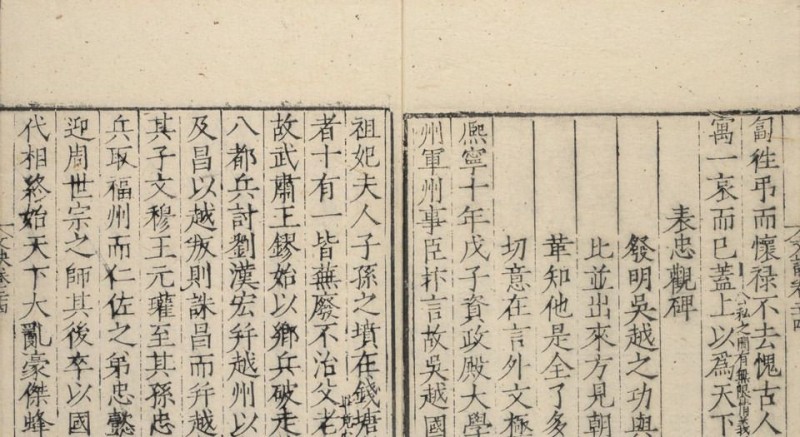 匐徃弔而懷禄不去愧古人
寓一哀而已蓋上以爲天下
表忠觀碑
發明吳越之功與
比並出來方見朝
華知他是全了多
切意在言外文極
熈寧十年戊子資政殿大學
州軍州事臣抃言故吳越國
祖妃夫人子孫之墳在錢塘
者十有一皆蕪廢不治父老
故武肅王鏐始以鄉兵破走
八都兵討劉漢宏并越州以
及昌以越叛則誅昌而并越
其子文穆王元瓘至其孫忠
兵取福州而仁佐之弟忠懿
迎周世宗之師其後卒以國
代相終始天下大亂豪傑蜂